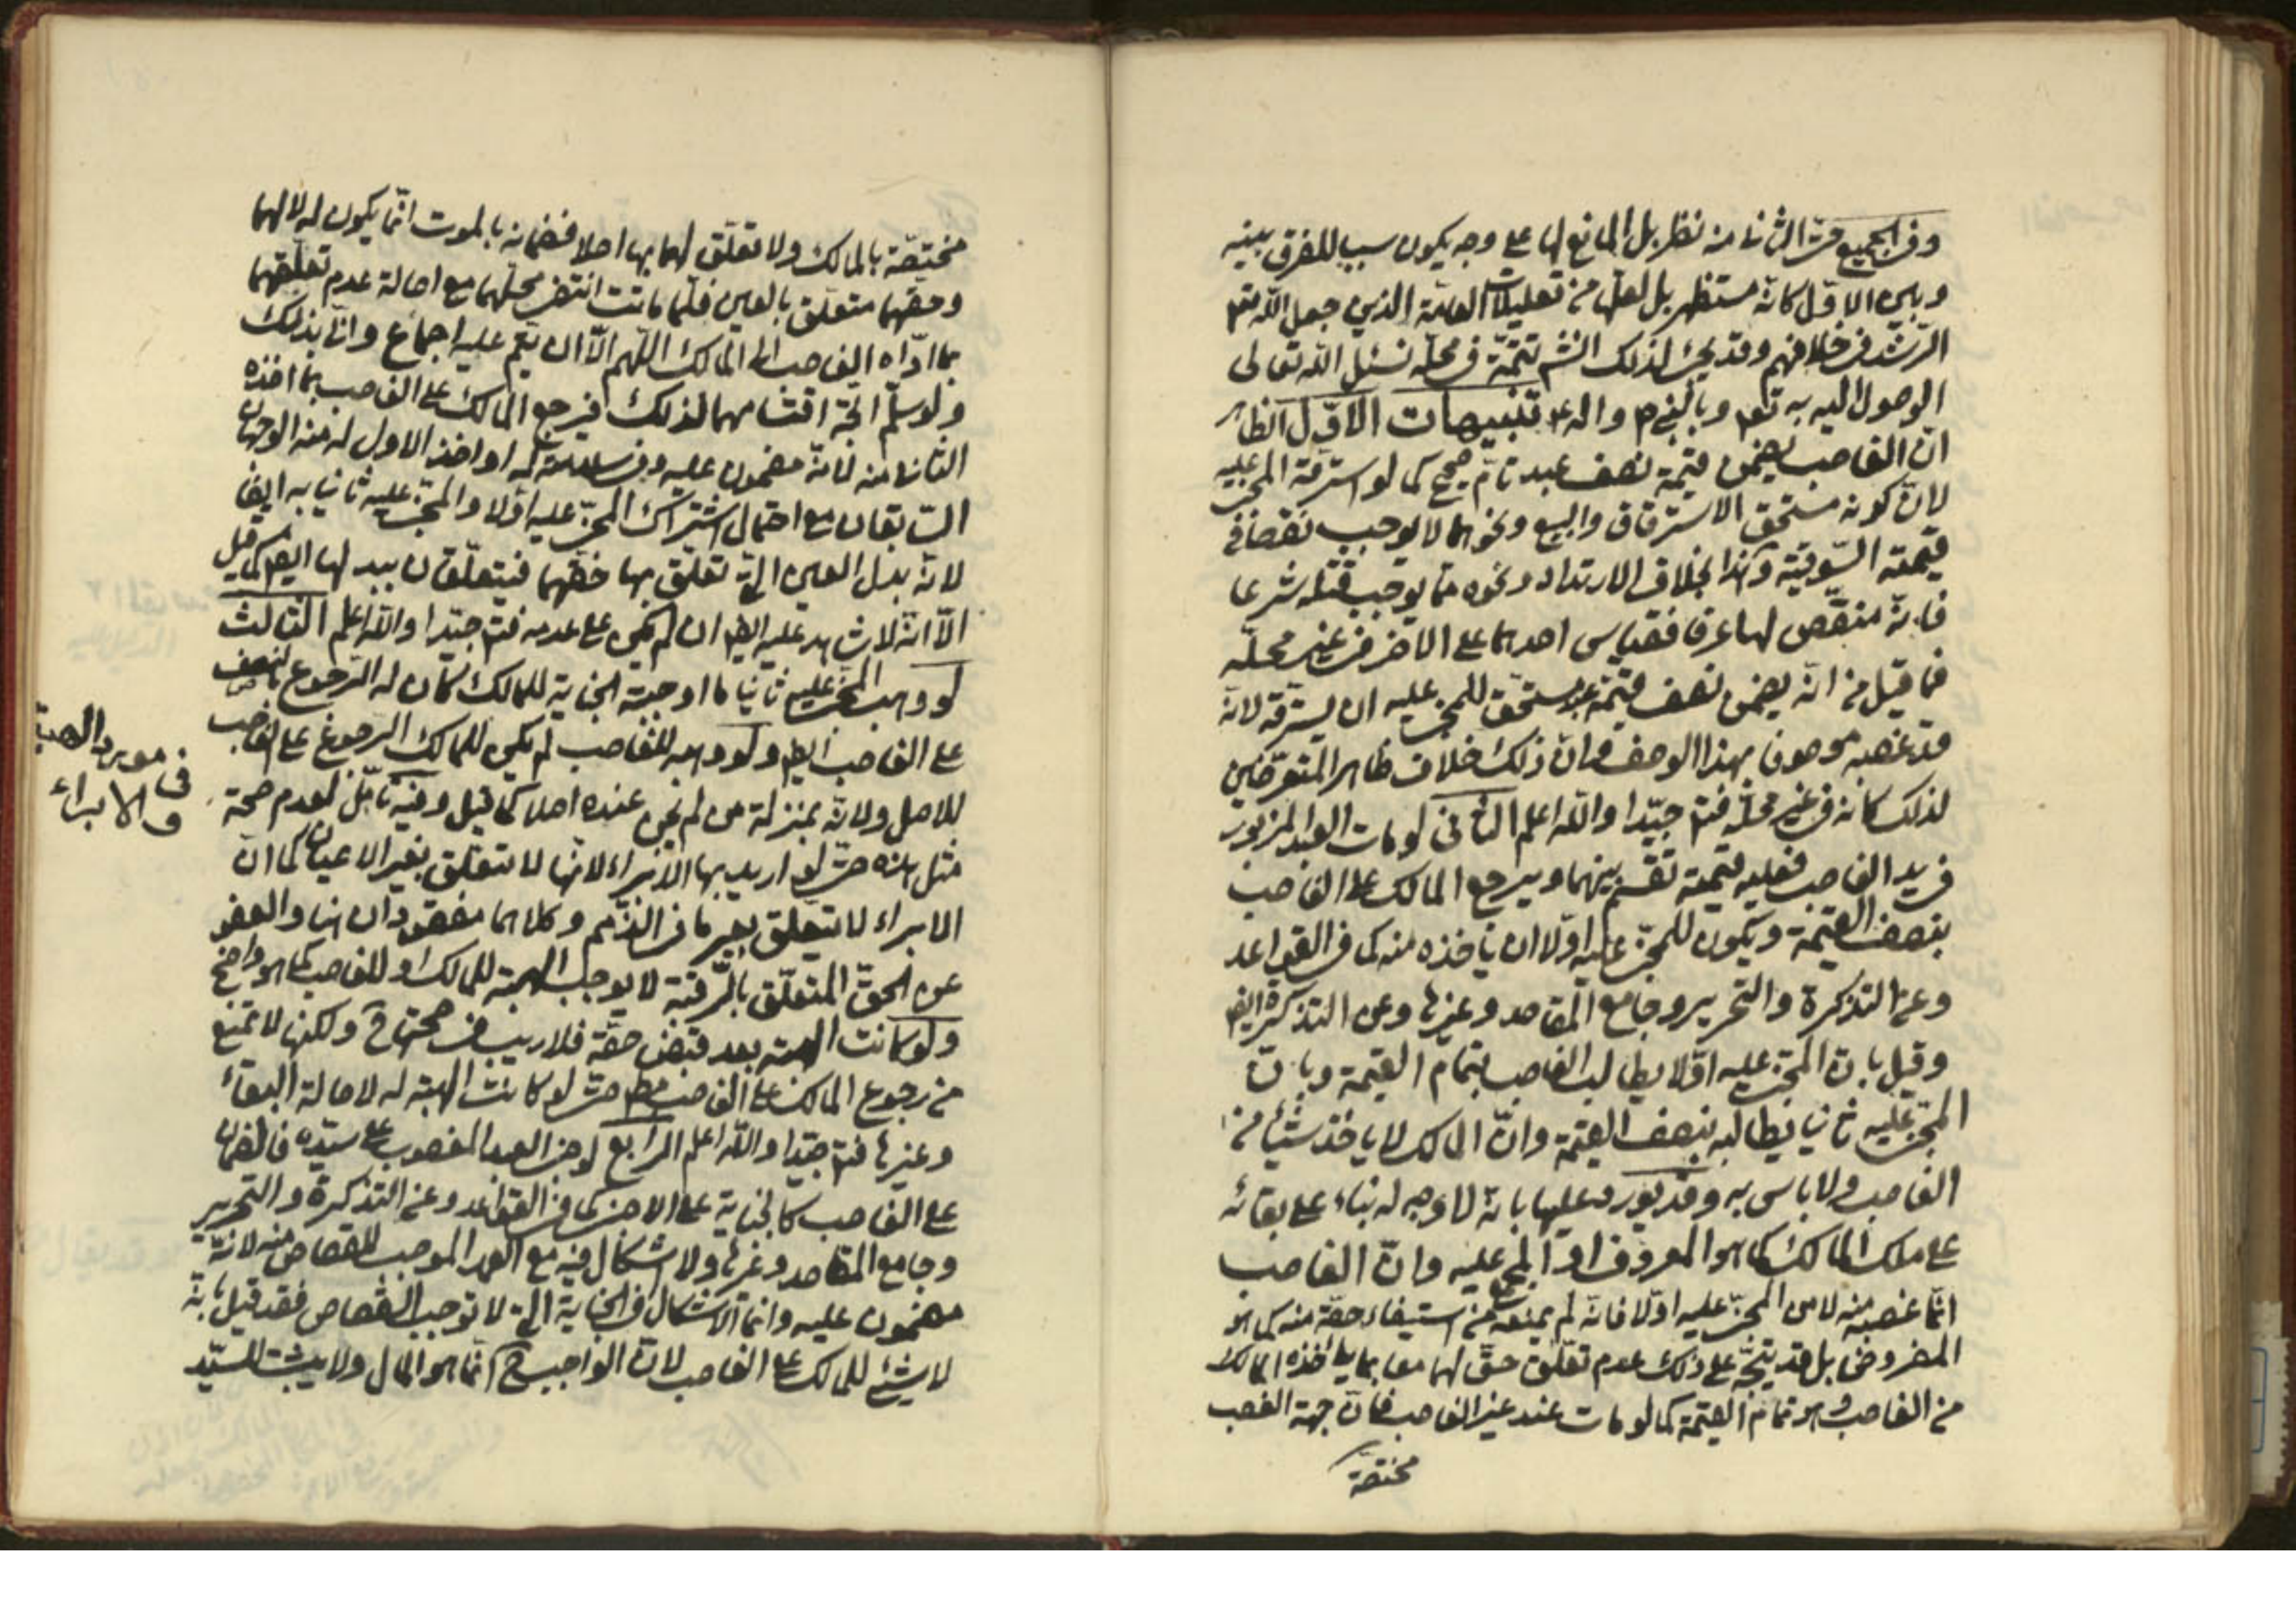 وفي الجميع حتى الثاني منه نظر بل المانع لها على وجه يكون سببا للفرق بينه
وبين الاول كانه مستظهر بل لعلها من تعليلات العامة الذين جعل الله
الرشد في خلافهم وقد يجئ لذلك انشم تتمة في محله نسئل الله تعالى
الوصول اليه به تعم وبالنبي ص واله ع تنبيهات الاول الظاهر
ان الغاصب يضمن قيمة نصف عبد تام صحيح كما لو استرقه المجنى عليه
لان كونه مستحق الاسترقاق والبيع ونحوهما لا يوجب نقصا في
قيمته السوقية وهذا بخلاف الارتداد ونحوه مما يوجب قتله شرعا
فانه منقص لها عرفا فقياس احدهما على الاخر في غير محله
فما قيل من انه يضمن نصف قيمة عبد مستحق للمجنى عليه ان يسترقه لانه
قد غصبه موصوفا بهذا الوصف وان ذلك خلاف ظاهر المتعرضين
لذلك كانه في غير محله فتم جيدا والله اعلم الثاني لو مات العبد المزبور
في يد الغاصب فعليه قيمته تقسم بينهما ويرجع المالك على الغاصب
بنصف القيمة ويكون للمجنى عليه اولا ان ياخذه منه كما في القواعد
وعن التذكرة والتحرير وجامع المقاصد وغيرها وعن التذكرة ايضا
وقيل بان المجنى عليه اولا يطالب الغاصب بتمام القيمة وبان
المجنى عليه ثانيا يطالبه بنصف القيمة وان المالك لا ياخذ شيئا من
الغاصب ولا باس به وقد يورد عليها بانه لا وجه له بناء على بقائه
على ملك المالك كما هو المعروف المجنى عليه وان الغاصب
انما غصبه منه لا من المجنى عليه اولا فانه لم يمنعه من استيفاء حقه منه كما هو
المفروض بل قد يتجه على ذلك عدم تعلق حق لهما معا بما ياخذه المالك
من الغاصب وهو تمام القيمة كما لو مات عند غير الغاصب فان جهة الغصب
مختصة
مختصة بالمالك ولا تعلق لهما بها اصلا فضمانه بالموت انما يكون له لا لهما
وحقهما متعلق بالعين فلما ماتت انتفى محلهما مع اصالة عدم تعلقهما
بما اداه الغاصب الى المالك اللهم الا ان يقم عليه اجماع وانى بذلك
ولو سلم اتجه اقتسامهما لذلك فيرجع المالك على الغاصب بما اخذه
الثاني منه لانه مضمون عليه وفي له او اخذ الاول له منه الوجهان
السابقان مع احتمال اشتراك المجنى عليه اولا والمجنى عليه ثانيا به ايضا
لانه بدل العين التي تعلق بها حقهما فيتعلقان ببدلها ايضا كما قيل
الا انه لا شاهد عليه ايضا ان لم يكن على عدمه فتم جيدا والله اعلم الثالث
لو وهب المجنى عليه ثانيا ما اوجبته الجناية للمالك كان له الرجوع بنصف
على الغاصب ايضا ولو وهبه للغاصب لم يكن للمالك الرجوع على الغاصب
للاصل ولانه بمنزلة من لم يجن عنده اصلا كما قيل وفيه تامل لعدم صحة
مثل هذه حتى لو اريد بها الابراء لانها لا تتعلق بغير الاعيان كما ان
الابراء لا يتعلق بغير ما في الذمم وكلاهما مفقودان هنا والعفو
عن الحق المتعلق بالرقبة لا يوجب الهبة للمالك او للغاصب كما هو واضح
ولو كانت الهبة بعد قبض حقه فلا ريب في صحتها ح ولكنها لا تمنع
من رجوع المالك على الغاصب مطم حتى لو كانت الهبة له لاصالة البقاء
وغيرها فتم جيدا والله اعلم الرابع لو جنى العبد المغصوب على سيده فالضمان
على الغاصب كالجناية على الاجنبي كما في القواعد وعن التذكرة والتحرير
وجامع المقاصد وغيرها ولا اشكال فيه مع العمد الموجب للقصاص منه لانه
مضمون عليه وانما الاشكال في الجناية التي لا توجب القصاص فقد قيل بانه
لا شئ للمالك على الغاصب لان الواجب ح انما هو المال ولا يثبت للسيد
في مورد الهبة
والابراء